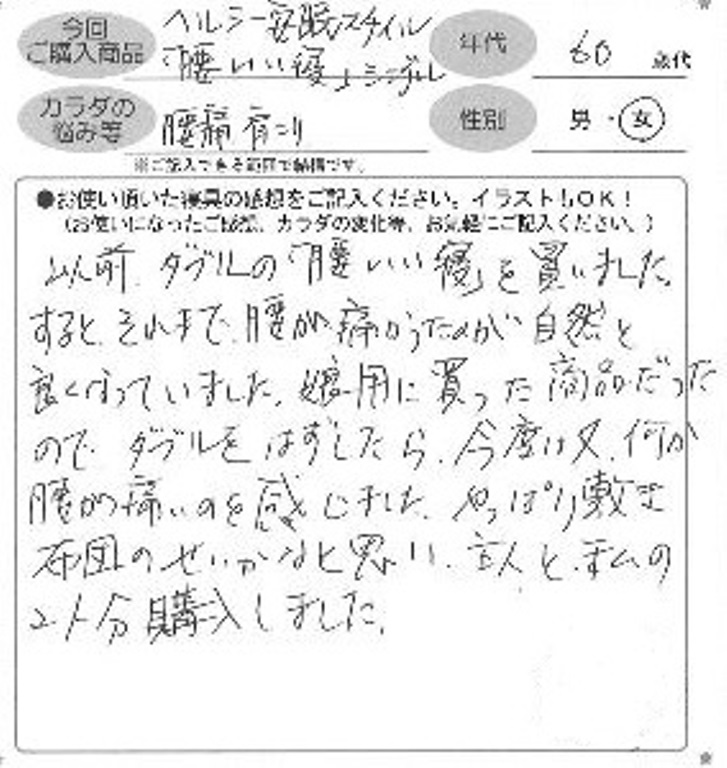 今回
ご購入商品
ヘルシー安眠スタイル
「腰いい寝」シングル
年代
60 歳代
カラダの
悩み等
腰痛 肩こり
性別
男・女
※ご記入できる範囲で結構です。
●お使い頂いた寝具の感想をご記入ください。イラストもOK！
（お使いになったご感想、カラダの変化等、お気軽にご記入ください。）
以前、ダブルの「腰いい寝」を買いました。
すると、それまで、腰が痛かったのが自然と
良くなっていました。嫁用に買った商品だった
ので、ダブルをはずしたら、今度は又、何か
腰が痛いのを感じました。やっぱり敷き
布団のせいかなと思い、主人と私の
2人分購入しました。